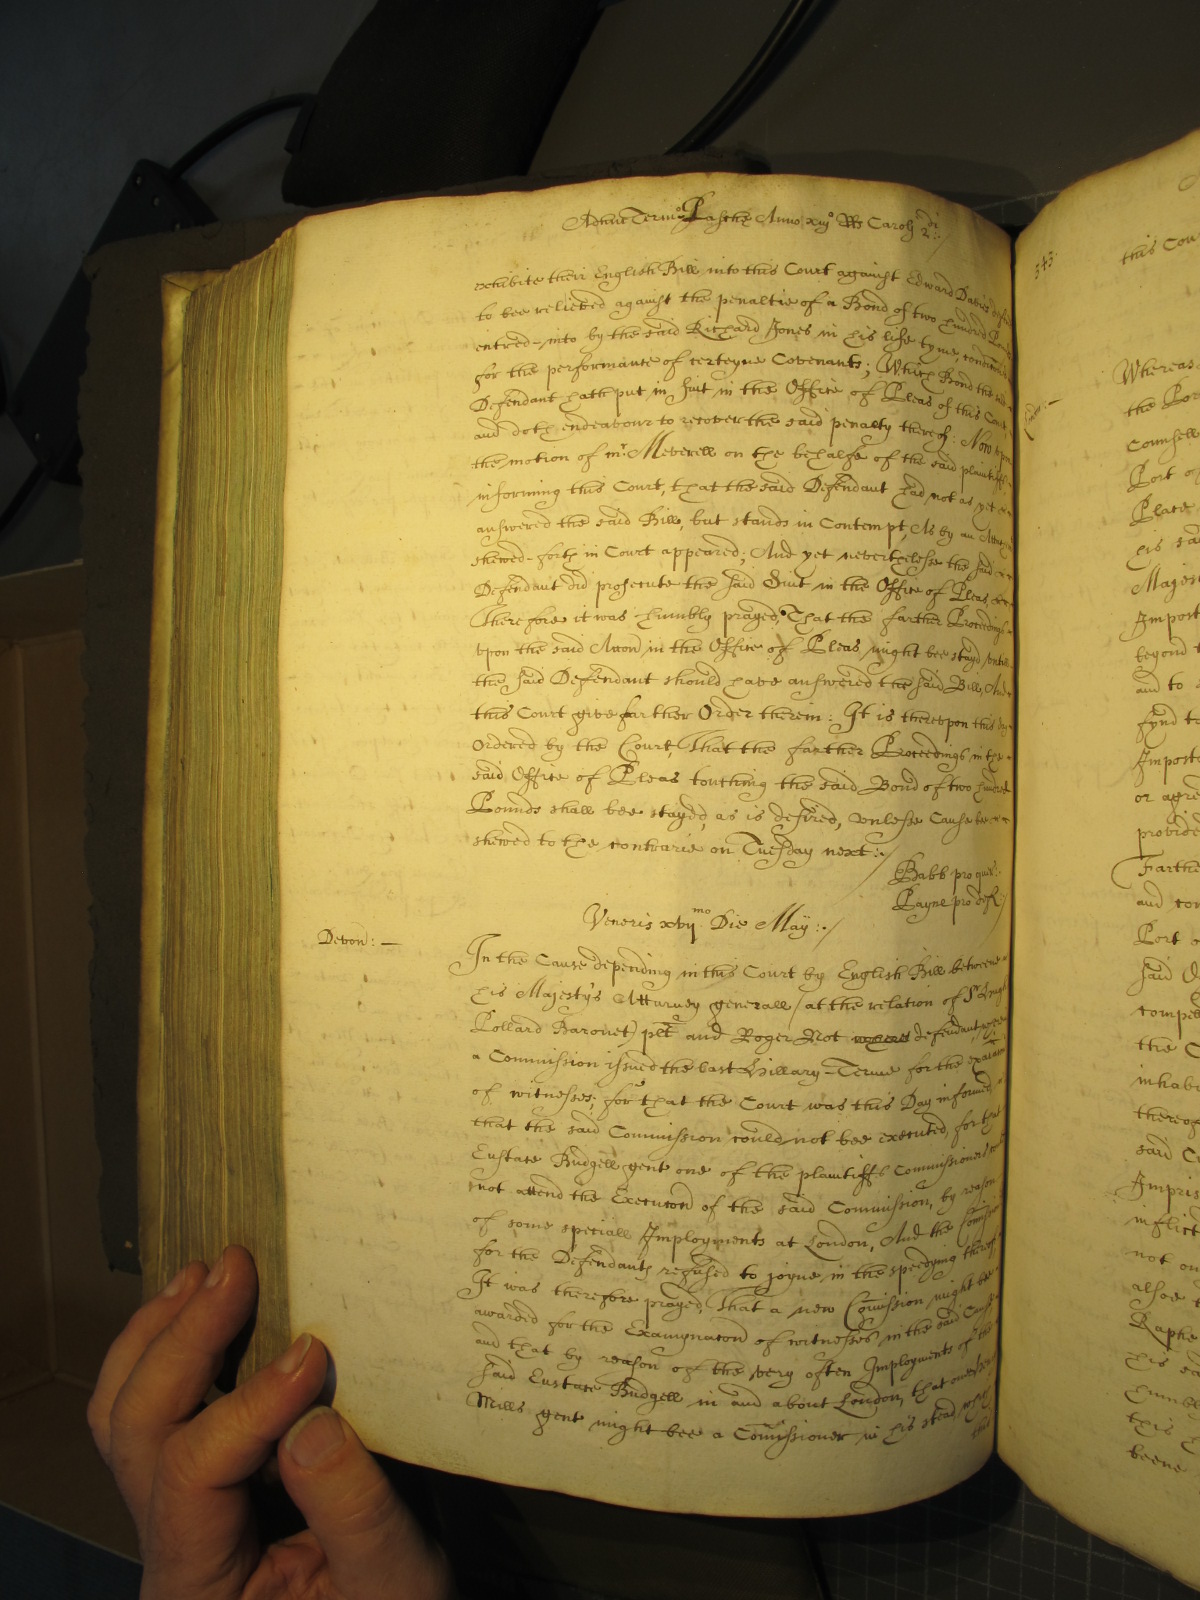 Adhuc Termo Pasche Anno xiijo Rs Caroli 2di
exhibite their English Bill into this Court against Edward Davies
to bee relieved against the penaltie of a Bond of two hundred
entred-into by the said Richard Jones in his life tyme, condiconed
for the performance of certeyne Covenants; Which Bond the said
Defendant hath put in suit in the Office of Pleas of this Court
and doth endeavour to recover the said penalty thereof: Now upon
the motion of mr Meverell on the behalfe of the said plaintiffs
informing this Court, that the said Defendant had not as yet
answered the said Bill, but stands in Contempt, As by an
shewed-forth in Court appeared; And yet neverthelesse the said
Defendant did prosecute the said Suit in the Office of Pleas
Therefore it was humbly prayed, That the farther Proceedings
vpon the said Accon in the Office of Pleas might bee stayd, vntill
the said Defendant should have answered the said Bill, And
this Court give farther Order therein: It is therevpon this day
Ordered by the Court, That the farther Proceedings in the
said Office of Pleas touching the said Bond of two hundred
Pounds shall bee stayed, as is desired, vnlesse Cause bee
shewed to the contrarie on Tuesday next:
Babb pro quer:
Payne pro def
Veneris xvijmo Die May:
Devon:
In the Cause depending in this Court by English Bill betweene
his Majesty's Atturney generall (at the relation of Sr Hugh
Pollard Baronet) plt and Roger Not defendant
a Commission issued the last Hillary-Terme for the
of witnesses; for that the Court was this Day informed,
that the said Commission could not bee executed, for that
Eustace Budgell gent one of the plaintiffs Commissioners
not attend the Execucon of the said Commission, by reason
of some speciall Imployments at London, And the Comission
for the Defendants refused to joyne in the speedying thereof
It was therefore prayed, That a new Comission might bee
awarded for the Examynacon of witnesses in the said Cause
and that by reason of the very often Imployments of the
said Eustace Budgell in and about London, that one
Mills gent might bee a Comissioner in his stead,
543.
this Cou
Whereas
the Por
Counsell
Port of
Place
his sa
Majest
Import
beyond t
and to
fynd t
Imposts
or agre
provide
Farthe
and con
Port o
said D
compell
the C
inhabi
thereof
said C
Impris
inflict
not on
alsoe t
Raphe
his
humbl
this
beene